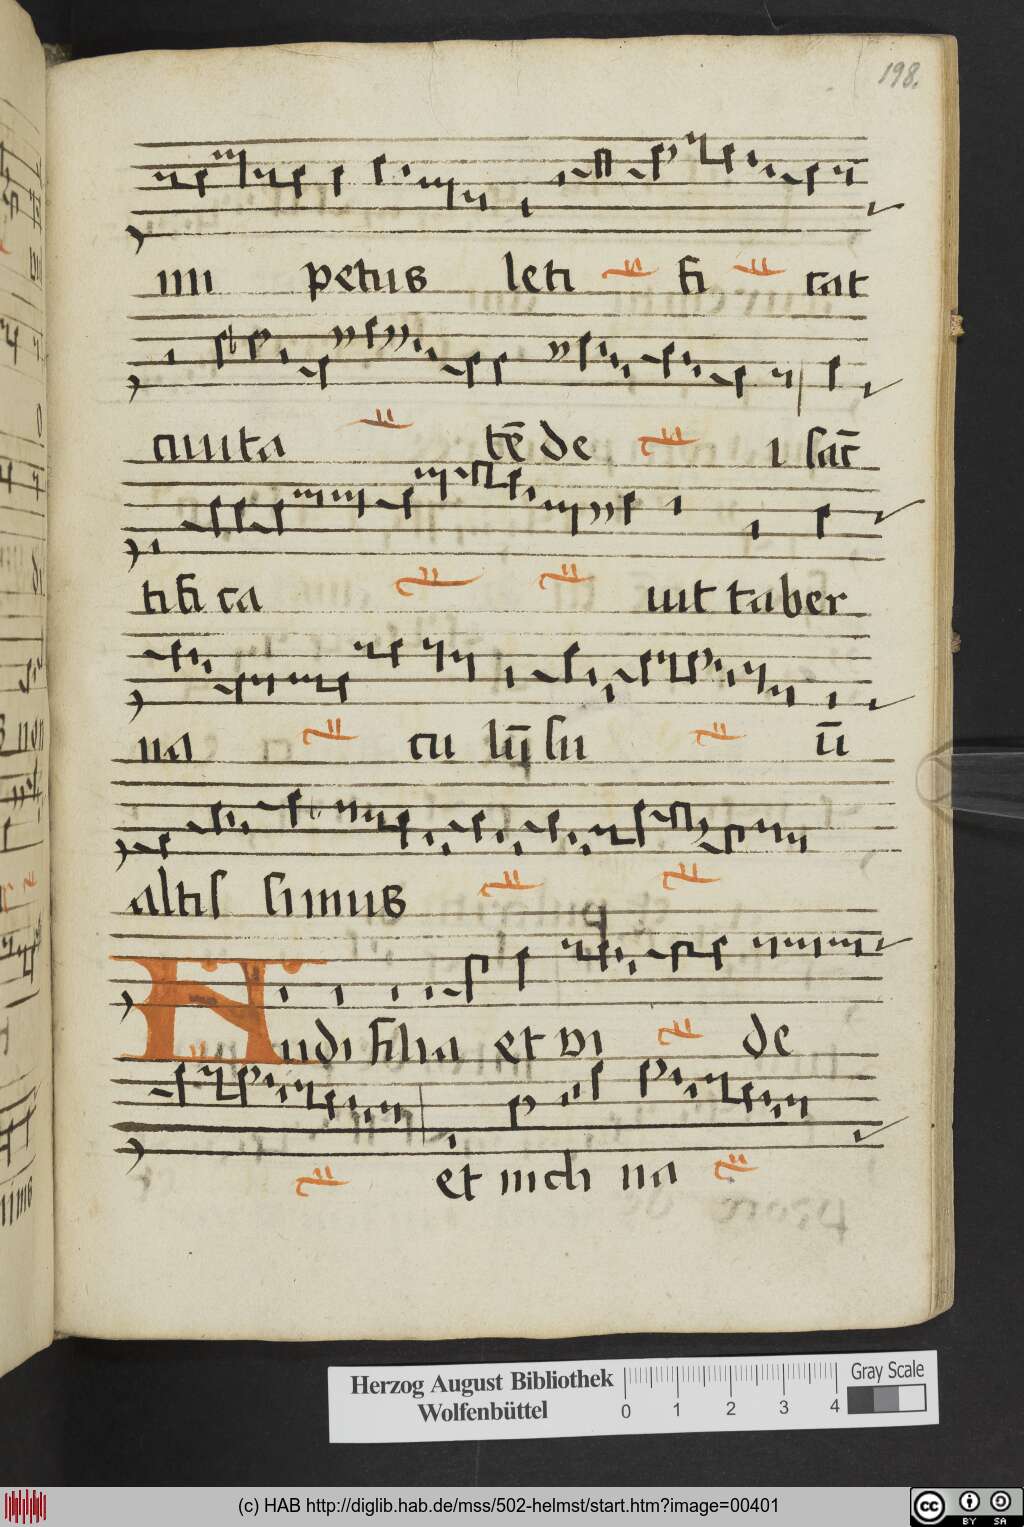 198.
nii petus leti fi cat
ciuita tē de i sāc
tifi ca uit taber
na cu lū su ū
altis simus
Audi filia et vi de
et incli na
Herzog August Bibliothek
Wolfenbüttel
0 1 2 3 4
Gray Scale
(c) HAB http://diglib.hab.de/mss/502-helmst/start.htm?image=00401
cc BY SA